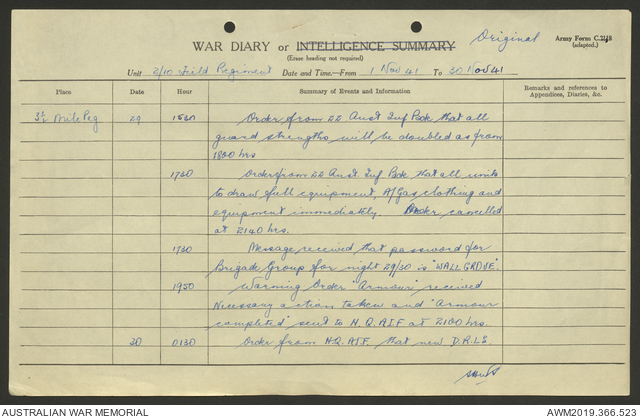 Original
WAR DIARY or INTELLIGENCE SUMMARY
Army Form C.2118
(adapted.)
(Erase heading not required)
Unit 2/10 Field Regiment Date and Time:—From 1 Nov 41 To 30 Nov 41
Place Date Hour Summary of Events and Information Remarks and references to
Appendices, Diaries, &c.
3½ Mile Peg 29 Order from 22 Aust Inf Bde that all
guard strengths will be doubled as from
1800 hrs
1730 Order from 22 Aust Inf Bde that all units
to draw full equipment, A/Gas clothing and
equipment immediately. Order cancelled
at 2140 hrs.
1730 Message received that password for
Brigade Group for night 29/30 is "WALLGROVE".
1950 Warning Order "Armour" received
Necessary action taken and "Armour
completed" sent to H.Q. A.I.F at 2100 hrs.
30 0130 Order from H.Q. A.I.F. that new D.R.L.S.
AUSTRALIAN WAR MEMORIAL
AWM2019.366.523